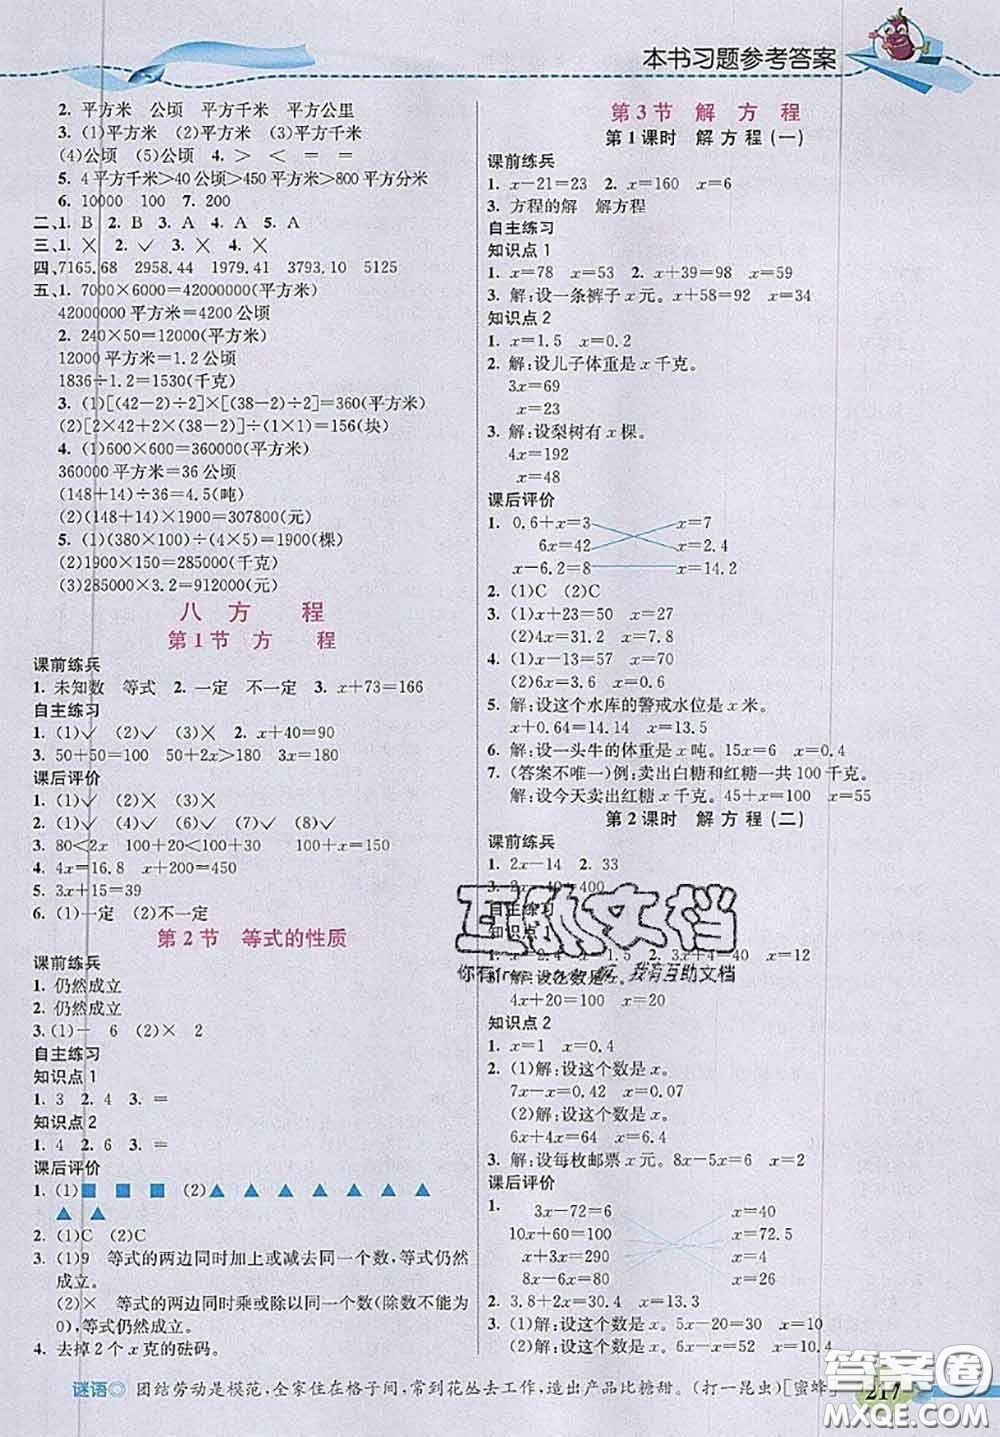 本书习题参考答案
2. 平方米 公顷 平方千米 平方公里
3. (1)平方米 (2)平方米 (3)平方千米
(4)公顷 (5)公顷 4. > < = =
5. 4平方千米>40公顷>450平方千米>800平方分米
6. 10000 100 7. 200
二、1. B 2. B 3. A 4. A 5. A
三、1. × 2. ✓ 3. × 4. ×
四、7165.68 2958.44 1979.41 3793.10 5125
五、1. 7000×6000=42000000(平方米)
42000000平方米=4200公顷
2. 240×50=12000(平方米)
12000平方米=1.2公顷
1836÷1.2=1530(千克)
3. (1)[(42-2)÷2]×[(38-2)÷2]=360(平方米)
(2)[2×42+2×(38-2)]÷(1×1)=156(块)
4. (1)600×600=360000(平方米)
360000平方米=36公顷
(148+14)÷36=4.5(吨)
(2)(148+14)×1900=307800(元)
5. (1)(380×100)÷(4×5)=1900(棵)
(2)1900×150=285000(千克)
(3)285000×3.2=912000(元)
八 方 程
第1节 方 程
课前练兵
1. 未知数 等式 2. 一定 不一定 3. x+73=166
自主练习
1. (1)✓ (2)✓ (3)× 2. x+40=90
3. 50+50=100 50+2x>180 3x=180
课后评价
1. (1)✓ (2)× (3)×
2. (1)✓ (2)✓ (3)✓ (4)✓
3. 80<2x 100+20<100+x 100+x=150
4. 4x=16.8 x+50=450
5. 3x+15=39
6. (1)一定 (2)不一定
第2节 等式的性质
课前练兵
1. 仍然成立
2. 仍然成立
3. (1)- 6 (2)× 2
自主练习
知识点1
1. 3 2. 4 3. =
知识点2
1. 4 2. 6 3. =
课后评价
1. (1)■ ■ ■ (2)▲ ▲ ▲ ▲ ▲ ▲ ▲
▲ ▲
2. (1)C (2)C
3. (1)9 等式的两边同时加上或减去同一个数,等式仍然
成立。
(2)× 等式的两边同时乘或除以同一个数(除数不能为
0),等式仍然成立。
4. 去掉2个x克的砝码。
第3节 解 方 程
第1课时 解方程(一)
课前练兵
1. x-21=23 2. x=160 x=6
3. 方程的解 解方程
自主练习
知识点1
1. x=78 x=53 2. x+39=98 x=59
3. 解:设一条裤子x元。x+58=92 x=34
知识点2
1. x=1.5 x=0.2
2. 解:设儿子体重是x千克。
3x=69
x=23
3. 解:设梨树有x棵。
4x=192
x=48
课后评价
1. 0.6+x=3 x=7
6x=42 x=2.4
x-6.2=8 x=14.2
2. (1)C (2)C
3. (1)x+23=50 x=27
(2)4x=31.2 x=7.8
4. (1)x+55=120 x=65
(2)6x=3.6 x=0.6
5. 解:设这个水库的警戒水位是x米。
x+0.64=14.14 x=13.5
6. 解:设一头牛的体重是x吨。15x=6 x=0.4
7. (答案不唯一)例:卖出白糖和红糖一共100千克。
解:设今天卖出红糖x千克。45+x=100 x=55
第2课时 解方程(二)
课前练兵
1. 2x-14 2. 33
3. 2x-40=400
自主练习
知识点1
1. x=2.4 x=1.5 2. 3x+4=40 x=12
3. 解:设这个数是x。
4x+20=100 x=20
知识点2
1. x=1 x=0.4
2. (1)解:设这个数是x。
7x-x=0.42 x=0.07
(2)解:设这个数是x。
6x+4x=64 x=6.4
3. 解:设每枚邮票x元。8x-5x=6 x=2
课后评价
1. 3x-72=6 x=40
10x+60=100 x=72.5
x+3x=290 x=4
8x-6x=80 x=26
2. 3.8+2x=30.4 x=13.3
3. (1)解:设这个数是x。5x-3x=20 x=10
(2)解:设这个数是x。 x=10.4
互助文档
我有互助文档
谜语◎ 团结劳动是模范,全家住在格子间,常到花丛去工作,造出产品比糖甜。(打一昆虫)[蜜蜂]
217
答案圈
MXQE.COM